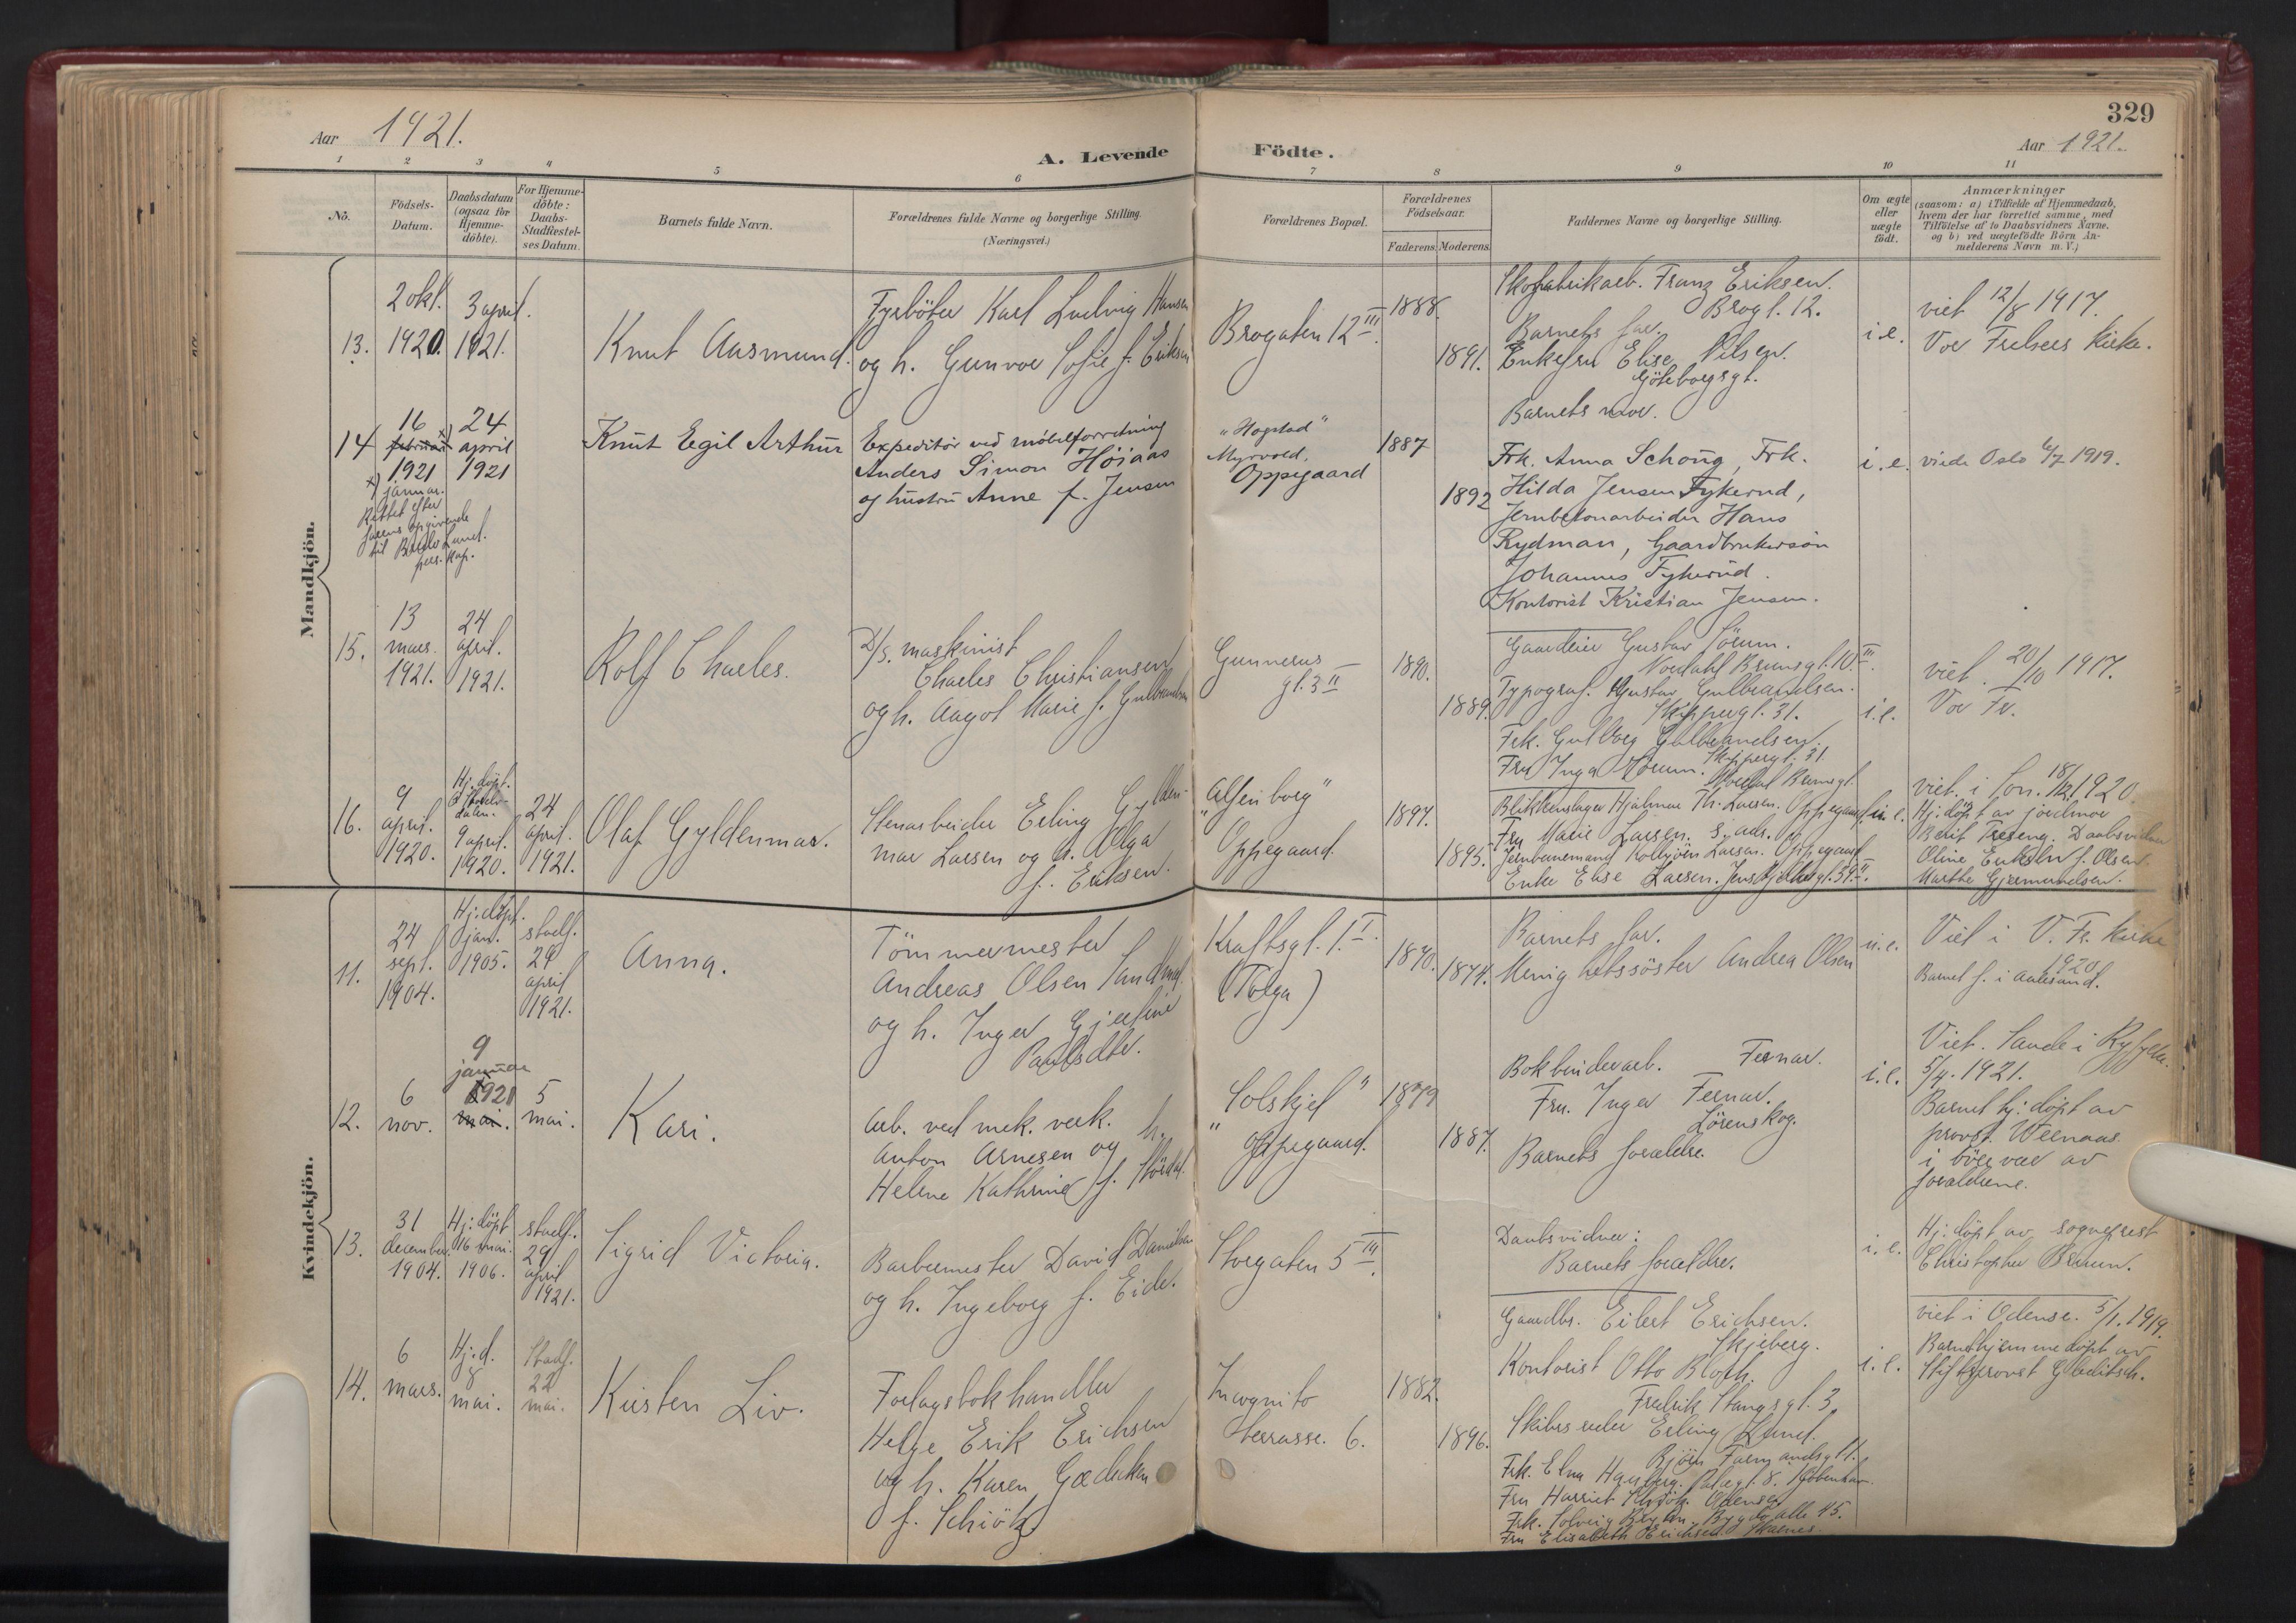 329
Aar 1921.
A. Levende Födte.
Aar 1921.
1 2 3 4 5 6 7 8 9 10 11
No.
Födsels-Datum.
Daabsdatum (ogsaa for Hjemme-döbte).
For Hjemme-döbte: Daabs-Stadfæstel-ses Datum.
Barnets fulde Navn.
Forældrenes fulde Navne og borgerlige Stilling.
(Næringsvei.)
Forældrenes Bopæl.
Forældrenes Födselsaar.
Faderens. Moderens.
Faddernes Navne og borgerlige Stilling.
Om ægte eller uægte födt.
Anmærkninger
(saasom: a) i Tilfælde af Hjemmedaab,
hvem der har forrettet samme, med
Tilföielse af to Daabsvidners Navne.
og b) ved uægtefödte Börn An-
melderens Navn m. V.)
Mandkjön.
13.
2 okt.
1920.
3 april.
1921.
Knut Aasmund.
Fyrböter Karl Ludvig Hansen
og h. Gunvor Sofie f. Eriksen
Brogaten 12 III.
1888.
1891.
Skofabrikarb. Franz Eriksen.
Brogt. 12.
Barnets far.
Enkefru Elise Nilsen.
Göteborgsgt.
Barnets mor.
i.e.
viet 12/8 1917.
Vor Frelsers kirke.
14
16
februar x)
1921
24
april
1921
x) januar.
Rettet efter
farens opgivende
til
pers. kap.
Knut Egil Arthur
Expeditör ved möbelforretning
Anders Simon Höiaas
og hustru Anne f. Jensen
"Hogstad"
Myrvold.
Oppegaard
1887
1892
Frk. Anna Schong, Frk.
Hilda Jensen Fykerud,
Jernbetonarbeider Hans
Rydman, Gaardbrukersön
Johannes Fykerud.
Kontorist Kristian Jensen.
i.e.
viede Oslo 6/7 1919.
15.
13
mars.
1921.
24
april.
1921.
Rolf Charles.
D/s. maskinist
Charles Christiansen
og h. Aagot Marie f. Gulbrandsen
Gunnerus
gt. 3 II
1890.
1889.
Gaardeier Gustav Sörum.
Nordahl Brunsgt. 10 III.
Typograf. Gustav Gulbrandsen.
Skippergt. 31.
Frk. Gulborg Gulbrandsen.
Skippergt. 31.
Fru Inga Sörum.
Nordahl Brunsgt.
i.e.
viet. 20/10 1917.
Vor Fr.
16.
9
april.
1920.
Hj. döpt.
9 april.
1920.
24
april.
1921.
Olaf Gyldenmar.
Stenarbeider Erling Gylden-
mar Larsen og h. Olga
f. Eriksen.
"Alfenborg"
Oppegaard.
1897.
1895.
Blikkenslager Hjalmar Th. Larsen. Oppegaard.
Fru Marie Larsen. s. ads.
Jernbanemand Kolbjörn Larsen. Oppegaard
Enke Elise Larsen. Jens Bjelkesgt. 59 II.
u.e.
viet. i Son. 18/12 1920.
Hj. döpt av jordmor
Berit Treseng. Daabsvidner
Oline Eriksen f. Olsen
Marthe Gjermundsen.
Kvindekjön.
11.
24
sept.
1904.
Hj. döpt.
jan.
1905.
stadf.
29
april
1921.
Anna.
Tömmermester
Andreas Olsen
og h. Inger Gjertine
Paulsdtr.
Kraftsgt. 1. I.
(Tolga)
1870.
1874.
Barnets far.
Menighetssöster Andrea Olsen
u.e.
Viet i V. Fr. kirke
1920.
Barnet f. i Aalesund.
12.
6
nov.
9
januar
1921
mai.
5
mai.
Kari.
Arb. ved mek. verk.
Anton Arnesen og h.
Helene Kathrine f.
"Solskjel"
Oppegaard.
1879
1887.
Bokbinderarb. Fernar.
Fru. Inger Fernar.
Lörenskog.
Barnets forældre.
i.e.
Viet. Sande i Ryfylke.
5/4. 1921.
Barnet hj. döpt av
provst. Weenaas
i övervær av
forældrene.
13.
31
december.
1904.
Hj. döpt
16 mai.
1906.
stadf.
29
april
1921.
Sigrid Victoria.
Barbermester David Danielsen
og h. Ingeborg f. Eide.
Storgaten 5 III.
Daabsvidner:
Barnets forældre.
i.e.
Hj. döpt av sogneprest
Christopher Bruun.
14.
6
mars.
Hj. d.
8
mai.
Stadf.
22
mai.
Kirsten Liv.
Forlagsbokhandler
Helge Erik Erichsen
og h. Karen Gædeken
f. Schiötz
Incognito
terrasse. 6.
1882.
1896.
Gaardbr. Eilert Erichsen.
Skjeberg.
Kontorist Otto Bloth.
Fredrik Stangsgt. 3.
Skibsreder Erling Lund.
Björn Farmandsgt. 11.
Frk. Elna Hagberg. 8. Köbenhavn.
Fru Harriet Schiötz. Odense.
Frk. Solveig Bygdö alle 45.
Fru Elisabeth Erichsen
i.e.
viet i Odense. 5/1. 1919.
Barnet hjemmedöpt av
Stiftsprovst Gleditsch.